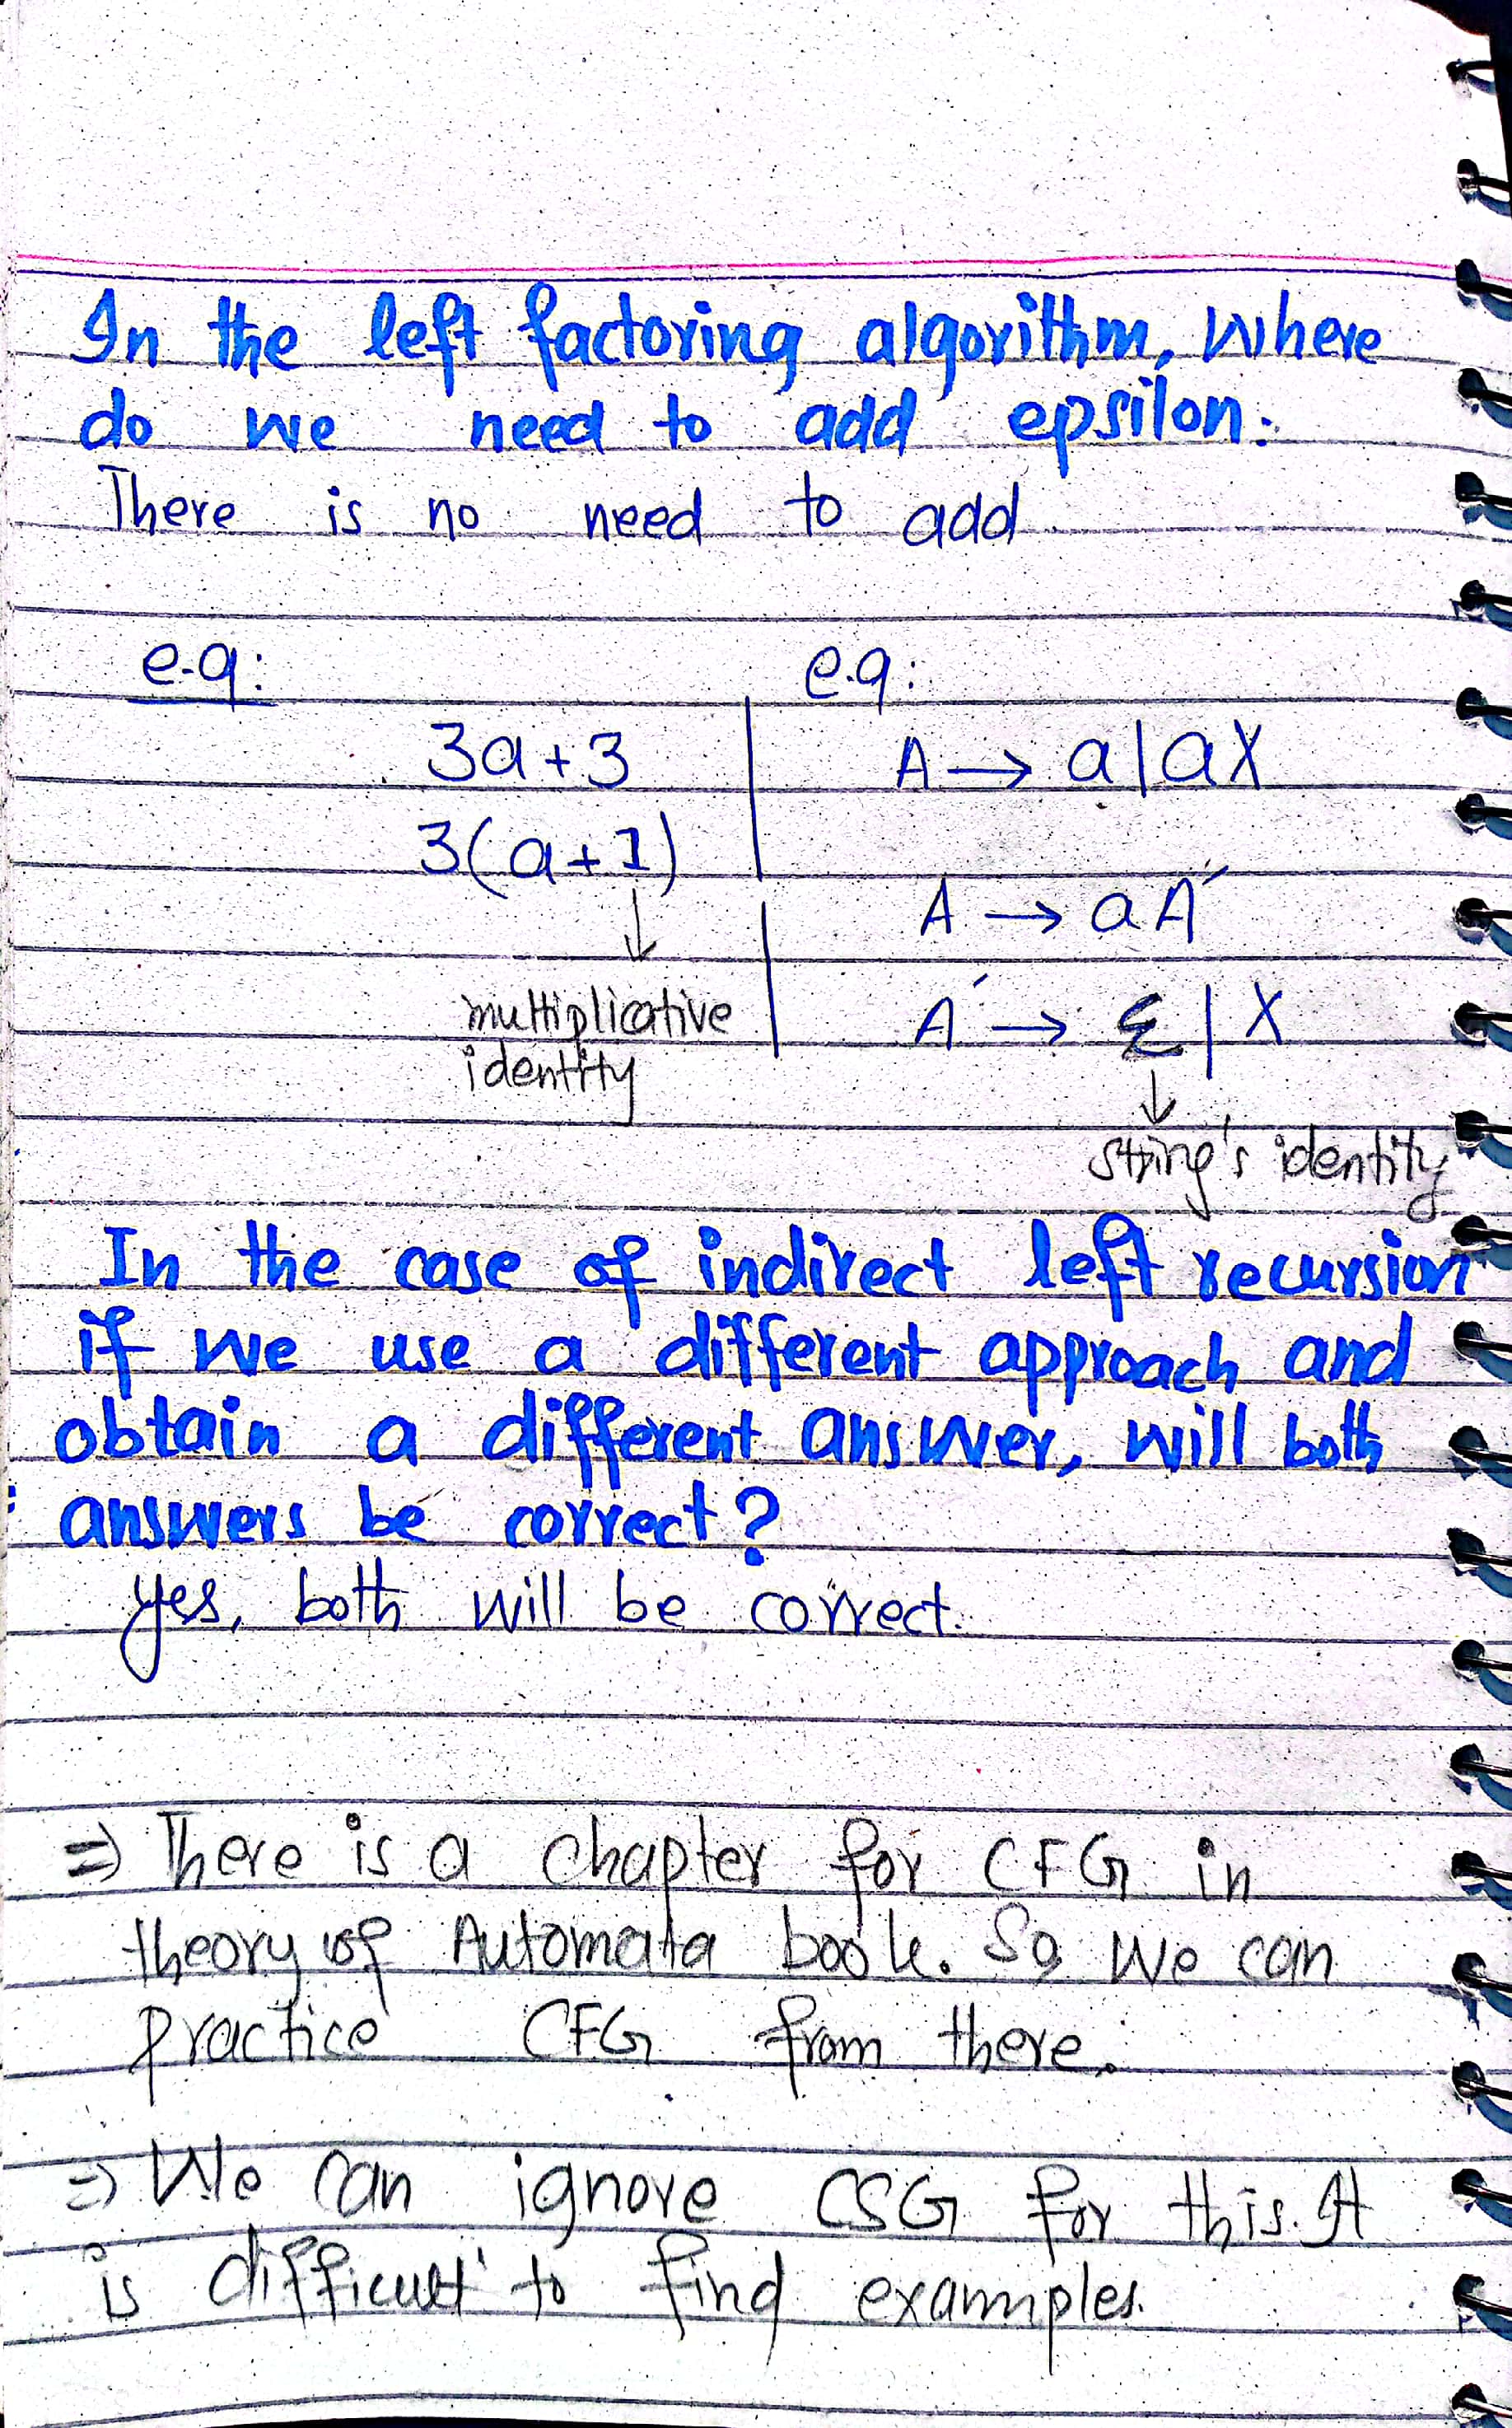 In the left factoring algorithm, where
do we need to add epsilon:
There is no need to add
e.g:
3a+3
3(a+1)
↓
multiplicative
identity
e.g:
A → a|aX
A → aA'
A' → Ɛ | X
↓
string's identity
In the case of indirect left recursion
if we use a different approach and
obtain a different answer, will both
answers be correct?
yes, both will be correct.
⇒ There is a chapter for CFG in
theory of Automata book. So we can
practice CFG from there.
⇒ We can ignore CSG for this. It
is difficult to find examples.